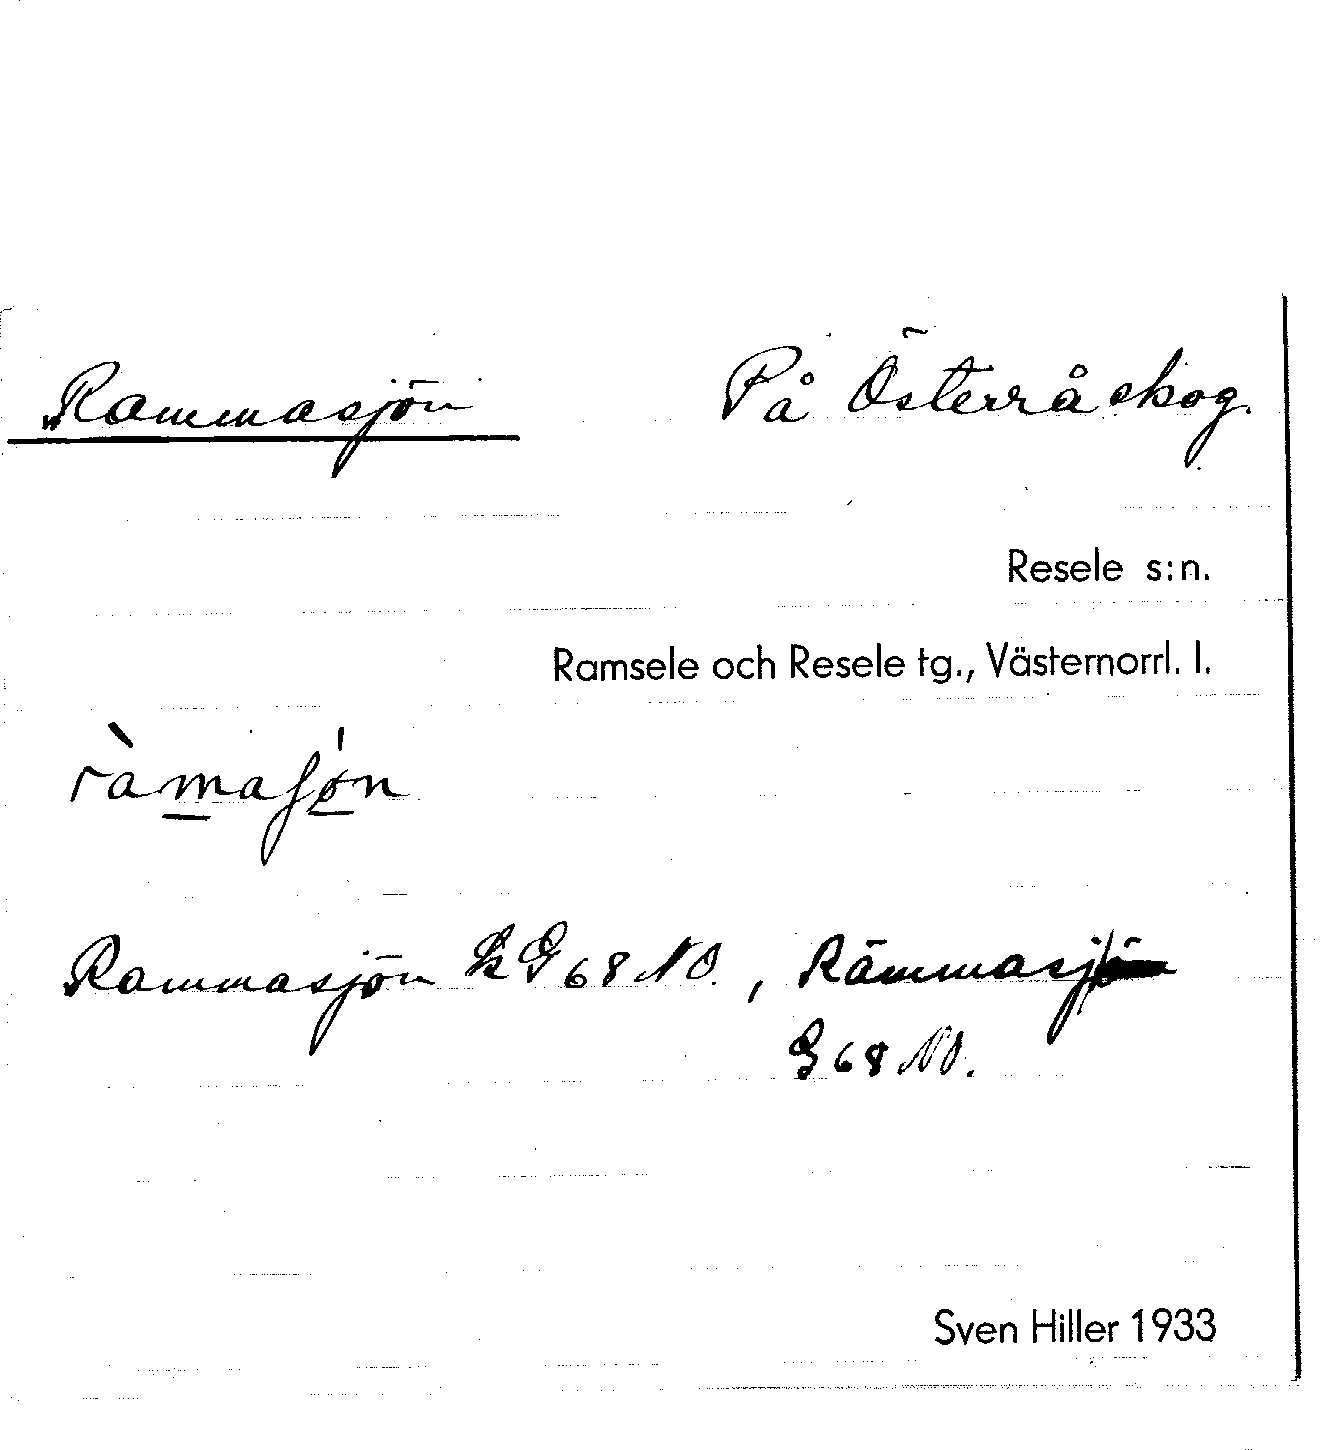 Rammasjön På Österråskog.
Resele s:n.
Ramsele och Resele tg., Västernorrl. l.
ràmaʃøn
Rammasjön G 68 NO., Rämmasj
G 68 NO.
Sven Hiller 1933